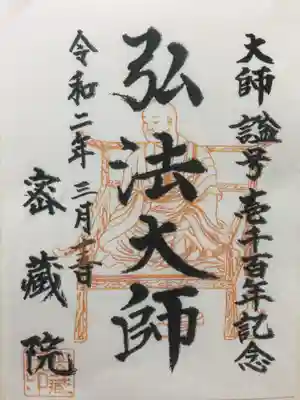 大師諡号壱千百年記念
弘法大師
令和二年三月
密藏院